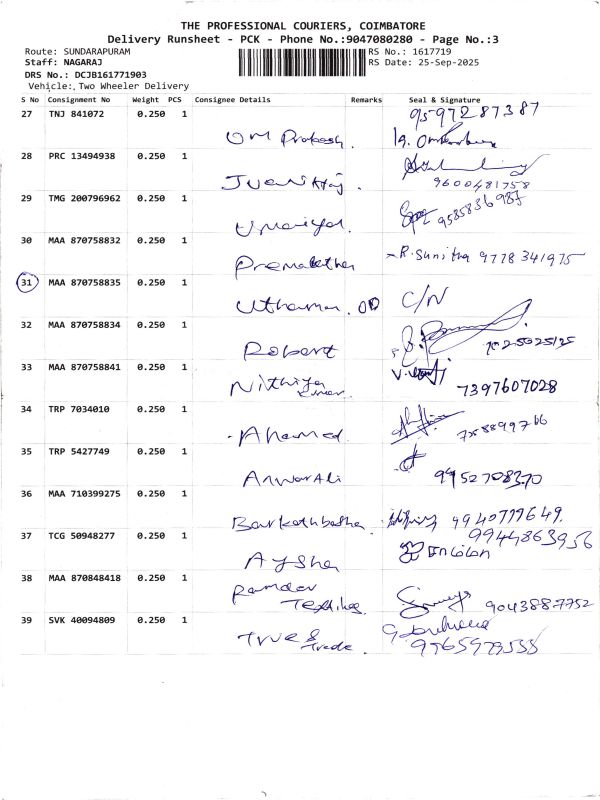 THE PROFESSIONAL COURIERS, COIMBATORE
Delivery Runsheet - PCK - Phone No.:9047080280 - Page No.:3
Route: SUNDARAPURAM
RS No.: 1617719
Staff: NAGARAJ
RS Date: 25-Sep-2025
DRS No.: DCJB161771903
Vehicle:, Two Wheeler Delivery
S No Consignment No Weight PCS Consignee Details Remarks Seal & Signature
27 TNJ 841072 0.250 1 9597287387
Om Prakash.
28 PRC 13494938 0.250 1
9600481758
29 TMG 200796962 0.250 1
30 MAA 870758832 0.250 1
Premalatha R. Sunitha 9778341975
31 MAA 870758835 0.250 1 C/N
Uthaman. OD
32 MAA 870758834 0.250 1
Robert
33 MAA 870758841 0.250 1
Nithiya Kumar. 7397607028
34 TRP 7034010 0.250 1
Ahamed.
35 TRP 5427749 0.250 1
Anwar Ali 9952708370
36 MAA 710399275 0.250 1
Barkathbasha. 9940777649.
37 TCG 50948277 0.250 1 9944863956
Aysha
38 MAA 870848418 0.250 1
Ramdev
Textiles. 9043887752
39 SVK 40094809 0.250 1
True &
Trade